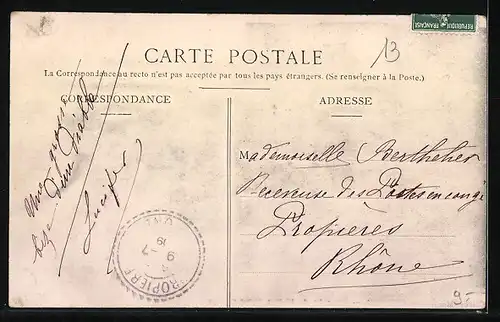 RÉPUBLIQUE FRANÇAISE
13
CARTE POSTALE
La Correspondance au recto n'est pas acceptée par tous les pays étrangers. (Se renseigner à la Poste.)
CORRESPONDANCE
ADRESSE
Une grosse
d'un Diable
Lucifer
Mademoiselle Berthelier
Receveuse des Postes en congé
Propières
Rhône
PROPIERE
9-7
19
9-